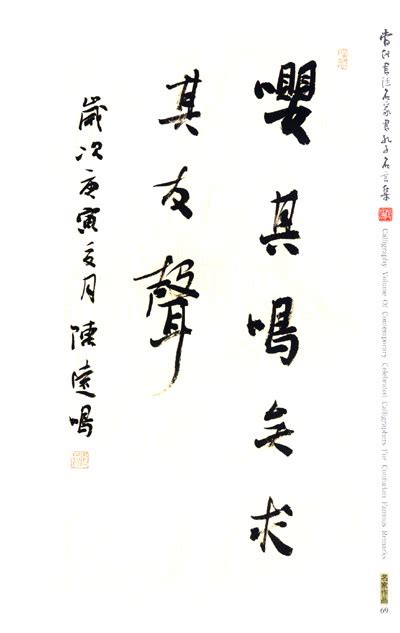 當代書法名家書孔子名言集
Calligraphy Volume Of Contemporary Celebrated Calligraphers For Confucian Famous Remarks
名家作品
69
嚶其鳴矣求
其友聲
歲次庚寅夏月 陳遠鳴